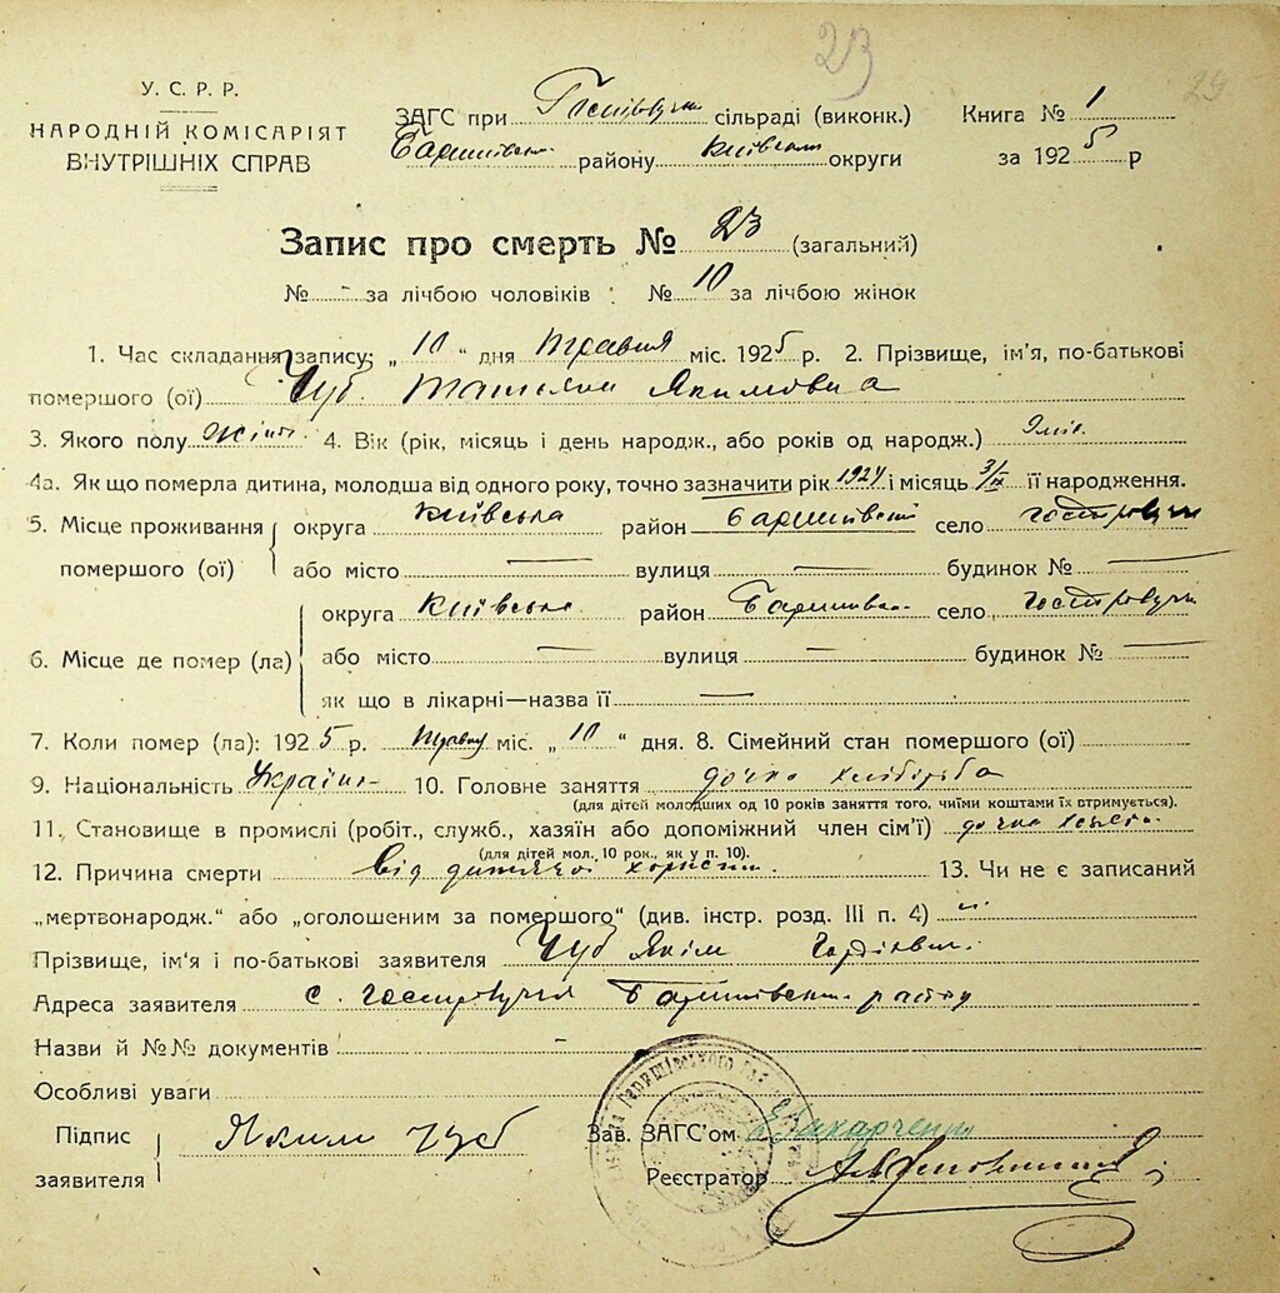 23
У. С. Р. Р.
НАРОДНІЙ КОМІСАРІЯТ
ВНУТРІШНІХ СПРАВ
ЗАГС при сільраді (виконк.)
району Київської округи
Книга № 1
за 1925 р
Запис про смерть № 23 (загальний)
№ - за лічбою чоловіків : № 10 за лічбою жінок
1. Час складання запису: „ 10 “ дня травня міс. 1925 р. 2. Прізвище, ім'я, по-батькові
помершого (ої) Чуб Якимовна
3. Якого полу жіноч. 4. Вік (рік, місяць і день народж., або років од народж.)
4а. Як що померла дитина, молодша від одного року, точно зазначити рік 1924 і місяць 3/IX її народження.
5. Місце проживання помершого (ої) округа Київська район Баришівський село
або місто — вулиця — будинок № —
6. Місце де помер (ла) округа Київська район село
або місто — вулиця — будинок № —
як що в лікарні—назва її —
7. Коли помер (ла): 1925 р. травня міс. „ 10 “ дня. 8. Сімейний стан помершого (ої)
9. Національність Україн- 10. Головне заняття дочка хлібороба
(для дітей молодших од 10 років заняття того, чиїми коштами їх отримується).
11. Становище в промислі (робіт., служб., хазяїн або допоміжний член сім'ї) дочка
(для дітей мол. 10 рок., як у п. 10).
12. Причина смерти від дитячої 13. Чи не є записаний
„мертвонародж.“ або „оголошеним за помершого“ (див. інстр. розд. III п. 4)
Прізвище, ім'я і по-батькові заявителя Чуб Яким
Адреса заявителя с. району
Назви й №№ документів -
Особливі уваги
Підпис заявителя Яким Чуб
Зав. ЗАГС'ом Захарченко
Реєстратор